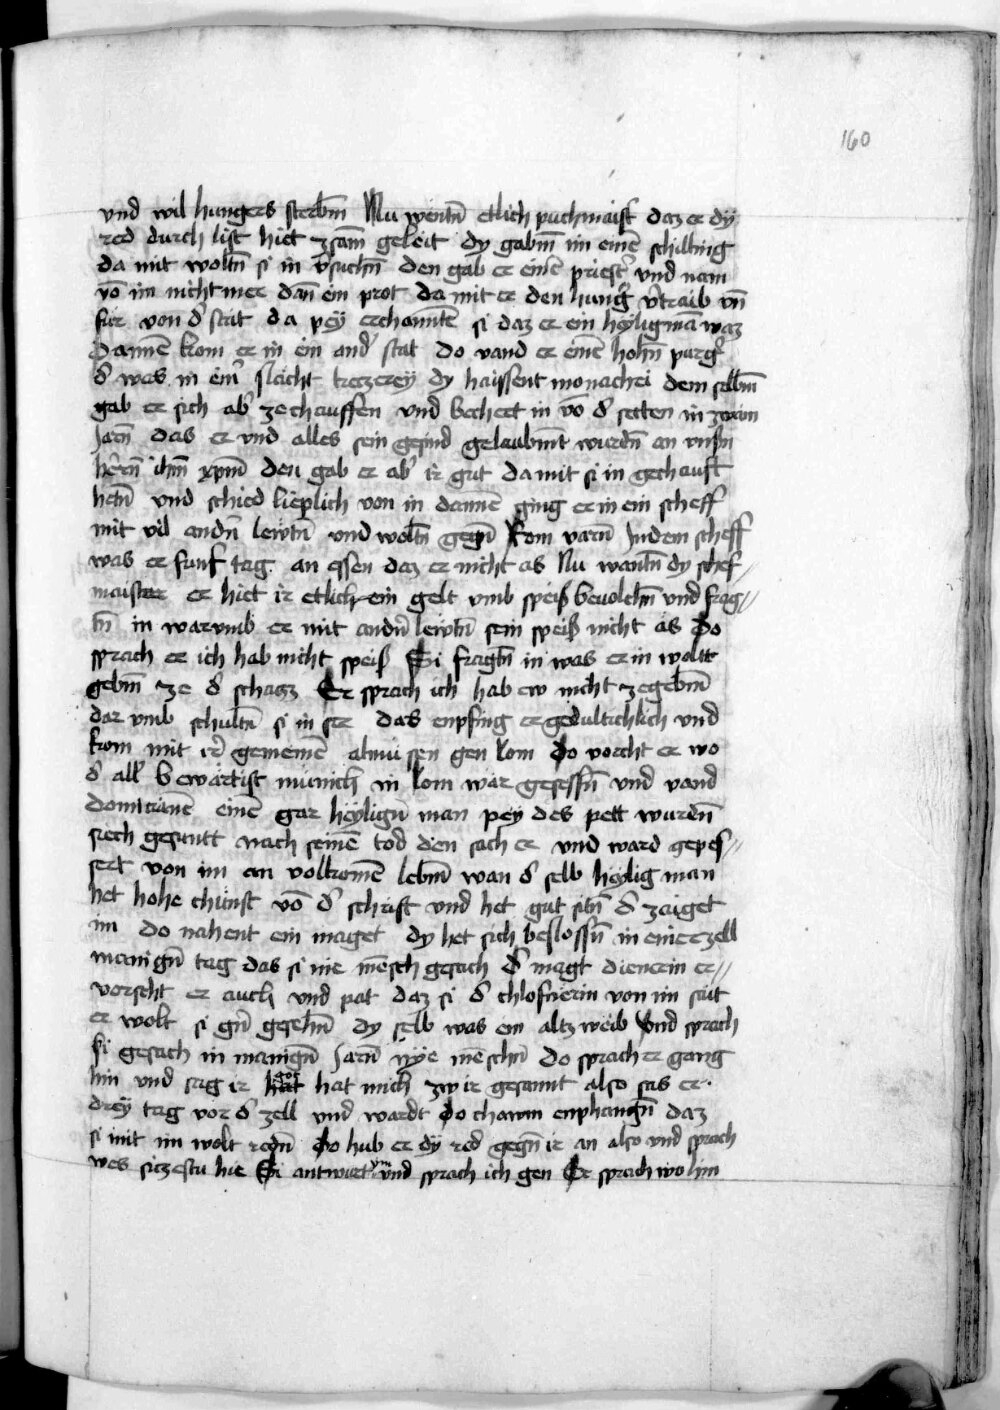 160
vnd wil hungers sterbm̄ Nu wentn̄ etlich puchmaist daz er dÿ
red durch list hiet zsam̄ geleit dy gabm̄ im einē schilling
da mit woltn̄ si in v̓suchn̄ den gab er einē priest̓ vnd nam
vō im nicht mer dan̄ ein prot da mit er den hung̓ v̓traib vn̄
fur von d̓ stat da peÿ erchanntē si daz er ein heÿligmā waz
Dannē kom er in ein and̓ stat do vand er einē hohn̄ purg̓
d̓ was in eim̓ slacht keczereÿ dy haissent monachei dem selbm̄
gab er sich ab̓ ze chauffen vnd bechert in vō d̓ secten in zwain
Jarn̄ das er vnd alles sein gesind gelaubmt wurdn̄ an vnsn̄
herrn̄ ihm̄ xpm̄ den gab er ab̓ ir gut da mit si in gechauft
hetn̄ vnd schied lieplich von in dannē ging er in ein scheff
mit vil andn̄ lewtn̄ vnd woltn̄ gegn̄ Rom varn̄ Jn dem scheff
was er funf tag an essen daz er nicht as Nu wantn̄ dy schef//
maister er hiet ir etlichem gelt vmb speiß beuolchn̄ vnd frag//
tn̄ in warumb er mit andn̄ lewtn̄ sein speiß nicht as do
sprach er ich hab nicht speiß Si fragtn̄ in was er in wolt
gebm̄ ze d̓ schacz Er sprach ich hab ew nicht zegebm̄
dar vmb schultn̄ si in ser das enpfing er gedultichlich vnd
kom mit ir̓ gemeinē almüssen gen Rom Do vorcht er wo
d̓ all̓ bewärtist münich in Rom wär gesessn̄ vnd vand
domicianē einē gar heÿlign̄ man peÿ des pett wurdn̄
siech gesuntt nach seinē tod dien sach er vnd ward gepes//
sert von im an volkomē lebm̄ wan d̓ selb heÿlig man
het hohe chünst vō d̓ schrift vnd het gut sitn̄ d̓ zaiget
im do nahent ein maget dy het sich beslossn̄ in einer zell
manign̄ tag das si nie mēsch gesach d̓ magt dienerin er//
vorscht er auch vnd pat daz si d̓ chlosnerin von im sait
er wolt si gn̄ gesehn̄ dy selb was ein altz weib Vnd sprach
si gesach in manign̄ Jarn̄ nÿe mēschn̄ do sprach er gang
hin vnd sag ir got hat mich zw ir gesannt also sas er
dreÿ tag vor d̓ zell vnd wardt Do chawm enphangn̄ daz
si mit im wolt redn̄ Do hub er dÿ red gegn̄ ir an also vnd sprach
wes siczestu hie Si antwurt ym vnd sprach ich gen Er sprach wo hin